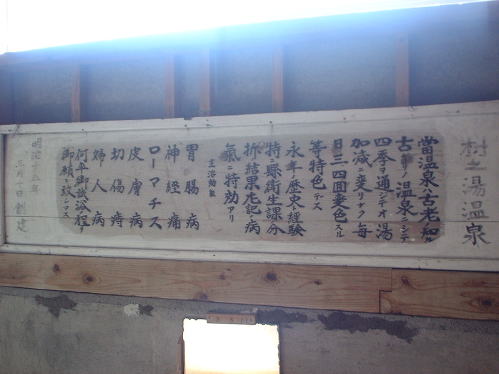 村之湯温泉
當温泉ハ古老知ル
古昔ノ温泉ニシテ
四季ヲ通シテオ湯
加減ニ変リナク毎
日三四回変色スル
等特色テス
永年歴史経験
特ニ縣衛生課分
拆結果左記ノ病
氣ニ特効アリ
主治効能
胃腸病
神経痛
ローマチス
皮膚病
切傷痔
婦人病
何卒御試浴程
御願ヒ致シマス
明治十三年
三月十日創建